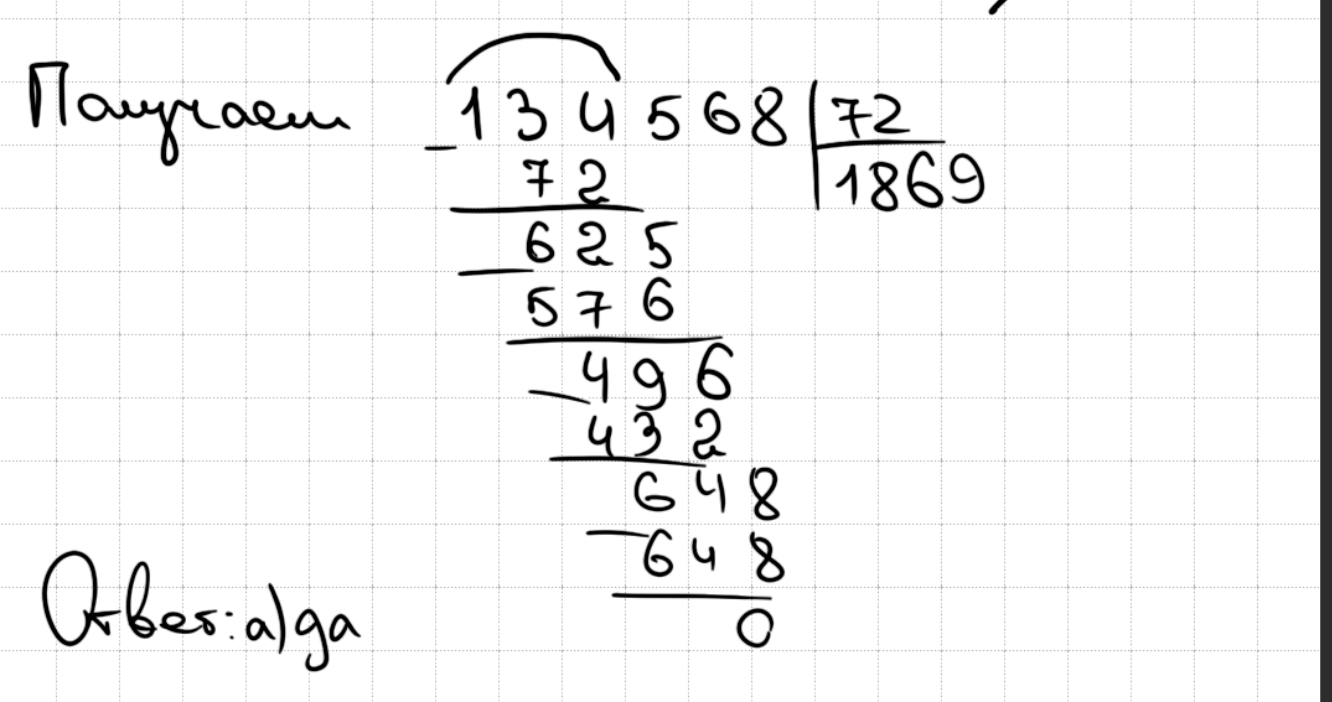 Получаем 134568 | 72
− 72 | 1869
625
− 576
496
− 432
648
− 648
0
Ответ: а) да